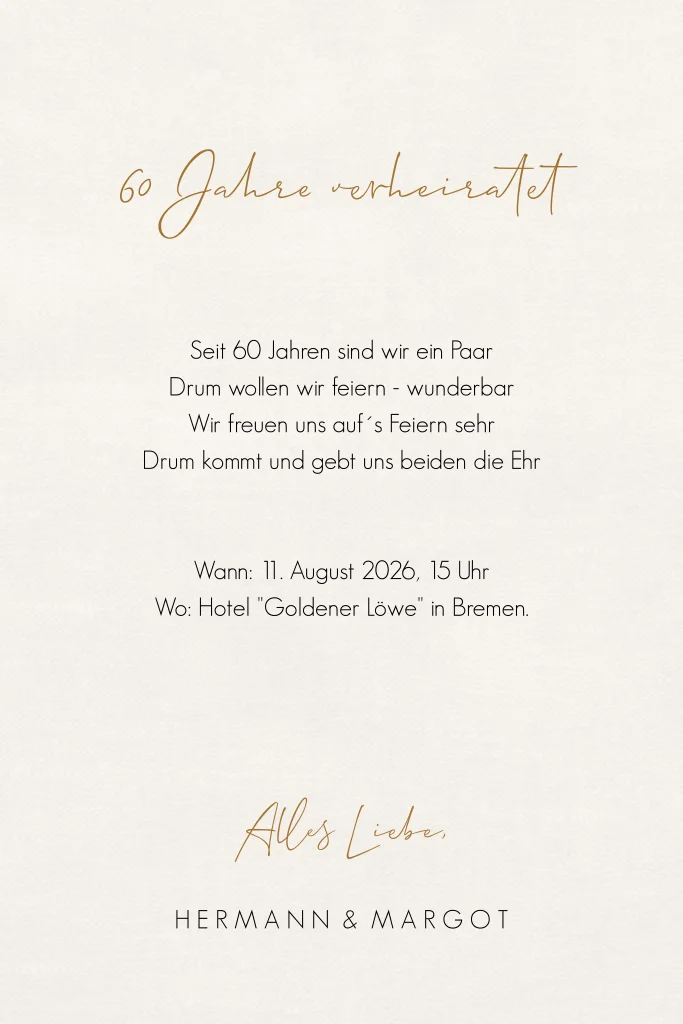 60 Jahre verheiratet
Seit 60 Jahren sind wir ein Paar
Drum wollen wir feiern - wunderbar
Wir freuen uns auf´s Feiern sehr
Drum kommt und gebt uns beiden die Ehr
Wann: 11. August 2026, 15 Uhr
Wo: Hotel "Goldener Löwe" in Bremen.
Alles Liebe,
HERMANN & MARGOT